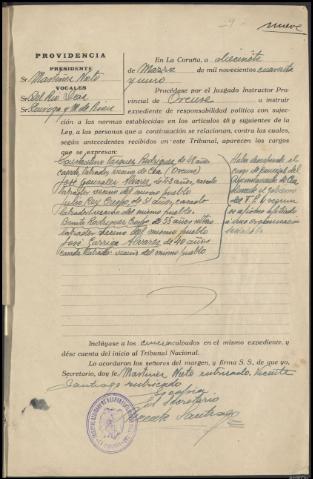 nueve
PROVIDENCIA
PRESIDENTE
Sr. Martinez Nieto
VOCALES
Sr. Del Rio
Sr.
En La Coruña, a diecisiete
de Marzo de mil novecientos cuarenta
y uno
Procédase por el Juzgado Instructor Pro-
vincial de Orense a instruír
expediente de responsabilidad política con suje-
ción a las normas establecidas en los artículos 48 y siguientes de la
Ley, a las personas que a continuación se relacionan, contra las cuales,
según antecedentes recibidos en este Tribunal, aparecen los cargos
que se expresan:
Vazquez Rodriguez de años
casado, labrador, vecino de Cea (Orense)
José Gonzalez Alvarez de 43 años, casado
labrador vecino del mismo pueblo
Julio Rey Crespo de 51 años, casado
labrador vecino del mismo pueblo.
Benito Rodriguez de 53 años
labrador vecino del mismo pueblo
José Alvarez de 40 años
casado labrador vecino del mismo pueblo.
Haber desempeñado el
cargo de concejal del
Ayuntamiento de Cea
durante el
del F. P.
Inclúyase a los encartados en el mismo expediente, y
dése cuenta del inicio al Tribunal Nacional.
Lo acordaron los señores del margen, y firma S. S., de que yo,
Secretario, doy fe. Martinez Nieto rubricado. Vicente
Santiago rubricado
Es copia
El Secretario
Vicente Santiago